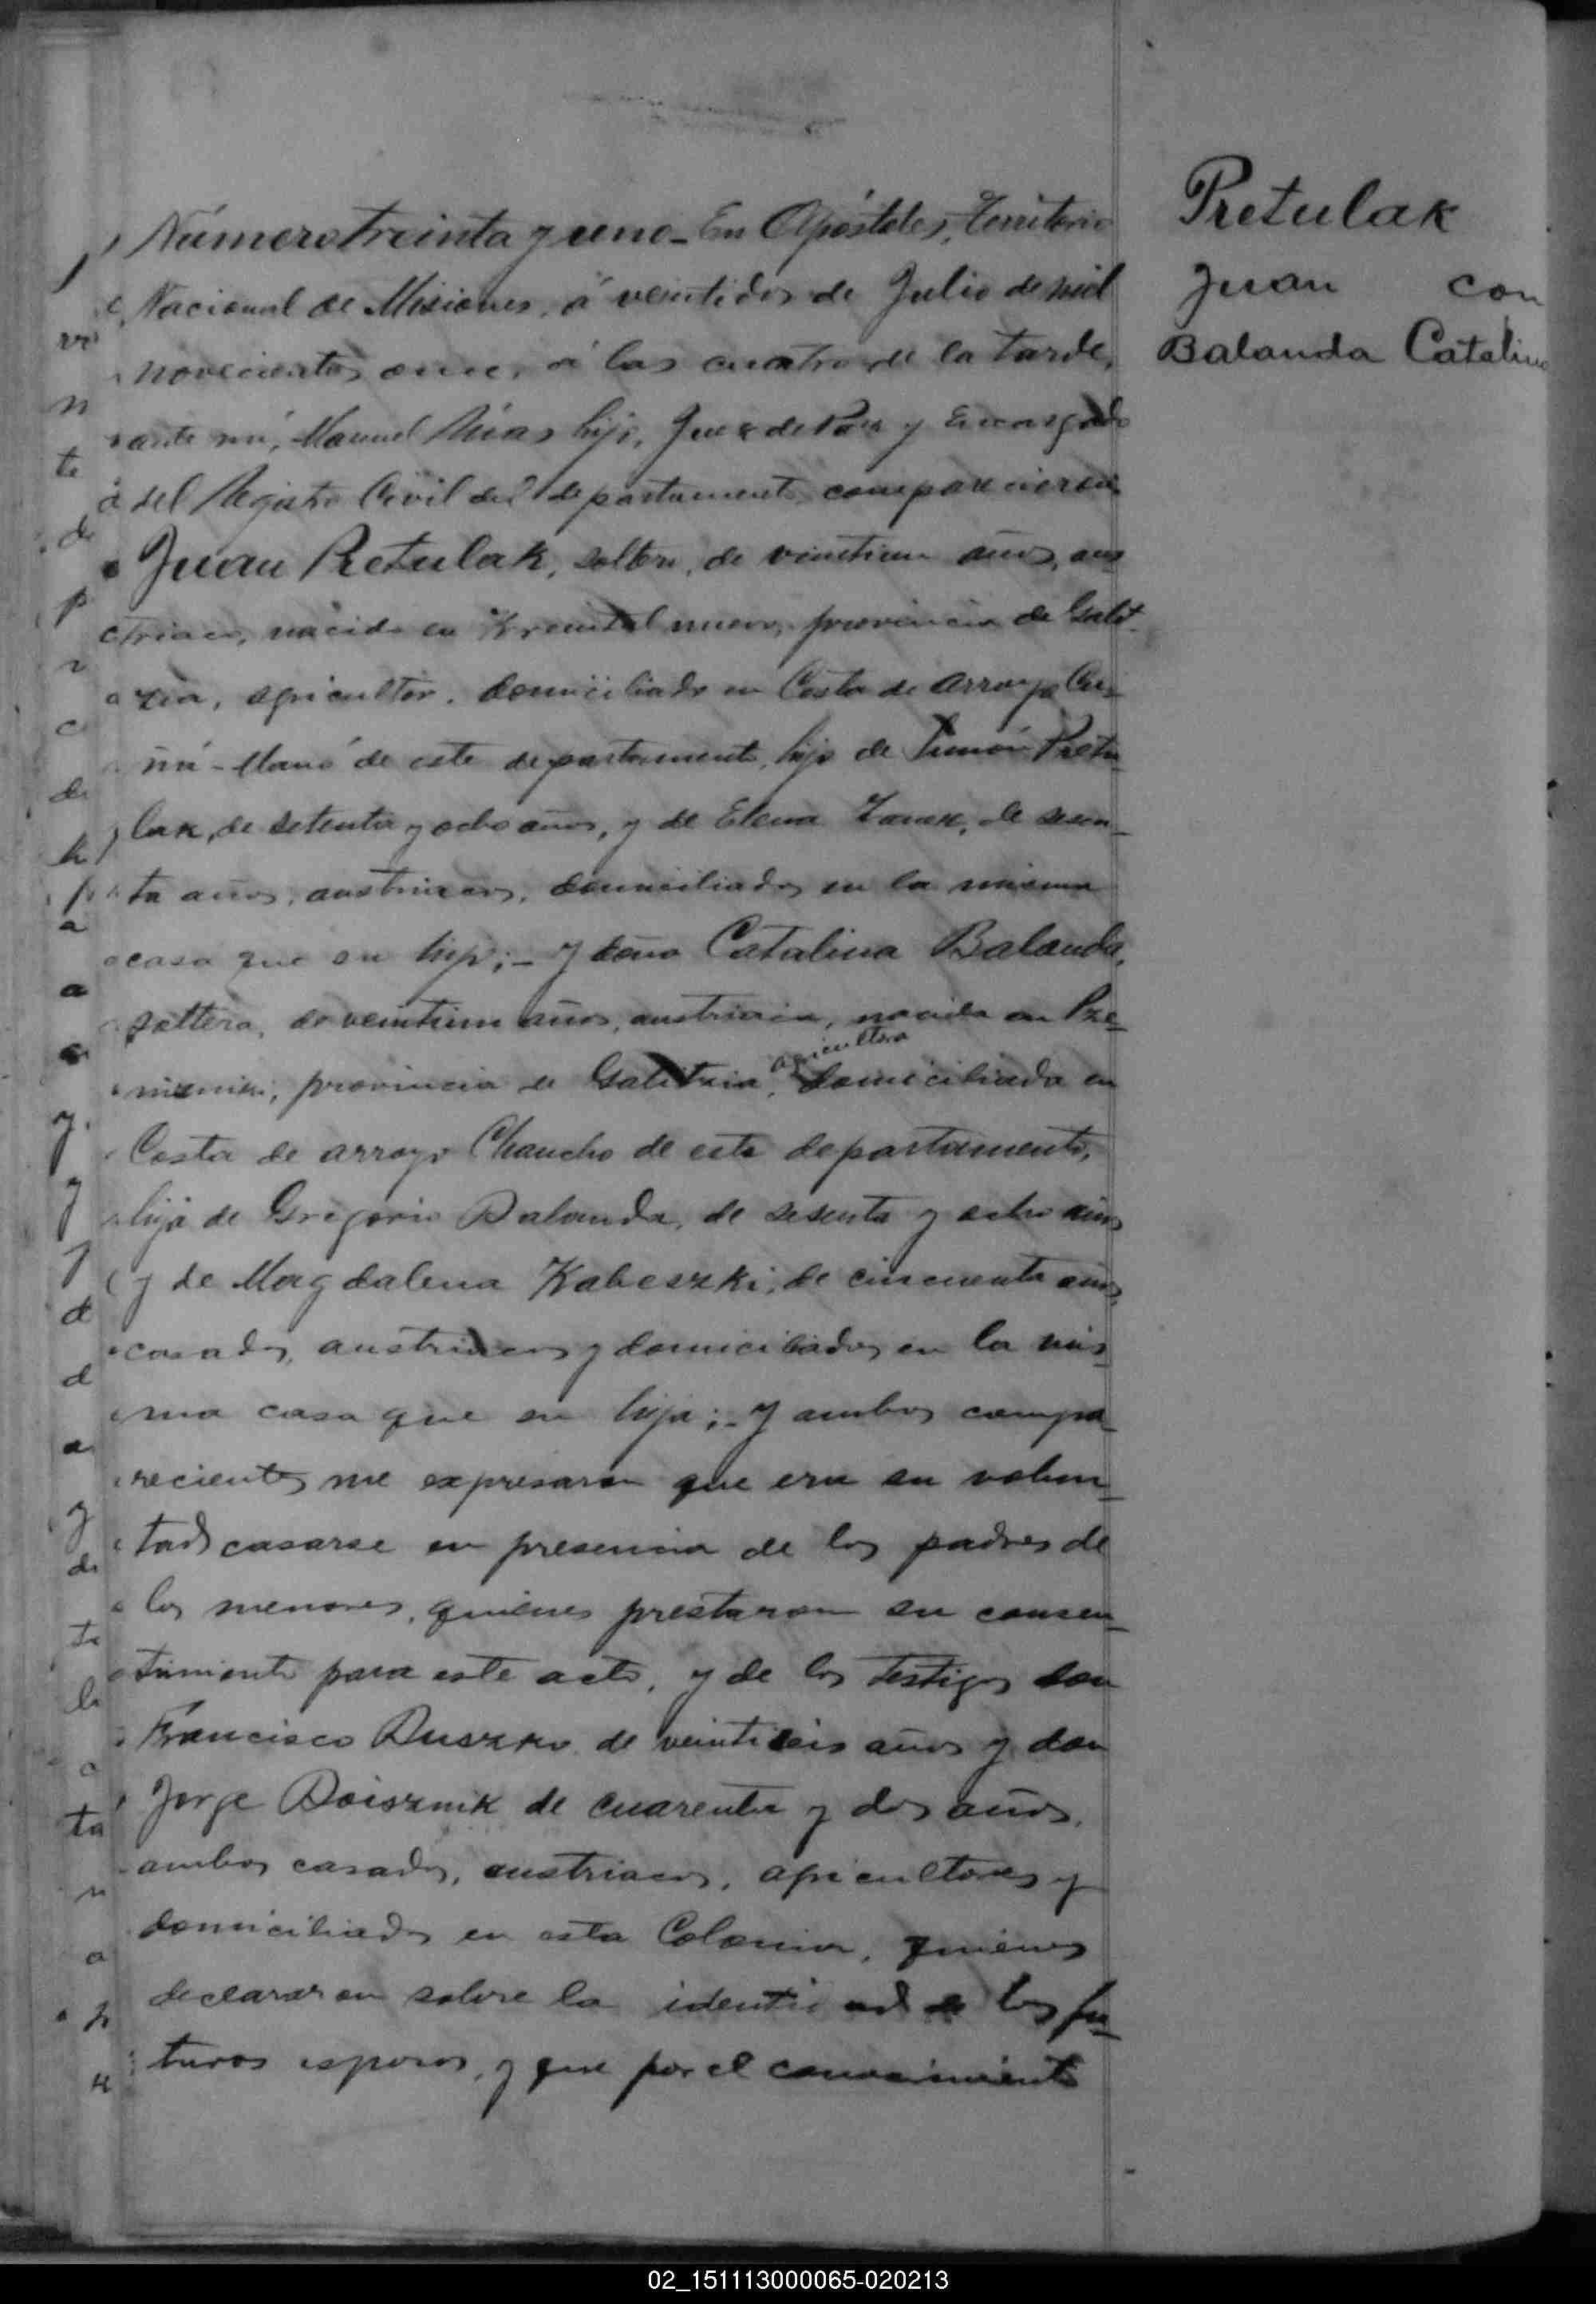 Número treinta y uno - En Apóstoles, Territorio
Nacional de Misiones, á veintidos de Julio de mil
novecientos once, á las cuatro de la tarde,
ante mí, Manuel hijo, Juez de Paz y Encargado
del Registro Civil del departamento comparecieron
Juan Pretulak, soltero, de veintiun años, aus
triaco, nacido en nuevo, provincia de Galit-
zia, agricultor, domiciliado en Costa de arroyo Cu-
ñá-Manó de este departamento, hijo de Simón Pretu-
lak, de setenta y ocho años, y de Elena de sesen-
ta años, austriacos, domiciliados en la misma
casa que su hijo; - y doña Catalina Balanda,
soltera, de veintiun años, austriaca, nacida en
provincia de Galitzia, agricultora domiciliada en
Costa de arroyo Chancho de este departamento,
hija de Gregorio Balanda, de sesenta y ocho años
y de Magdalena Kabeszki, de cincuenta años,
casados, austriacos y domiciliados en la mis-
ma casa que su hija; - y ambos compa-
recientes me expresaron que era su volun-
tad casarse en presencia de los padres de
los menores, quienes prestaron su consen-
timiento para este acto, y de los testigos don
Francisco Duszko de veintiseis años y don
Jorge de cuarenta y dos años,
ambos casados, austriacos, agricultores y
domiciliados en esta Colonia, quienes
declararon sobre la identidad de los fu-
turos esposos, y que por el conocimiento
Pretulak
Juan con
Balanda Catalina
02_151113000065-020213